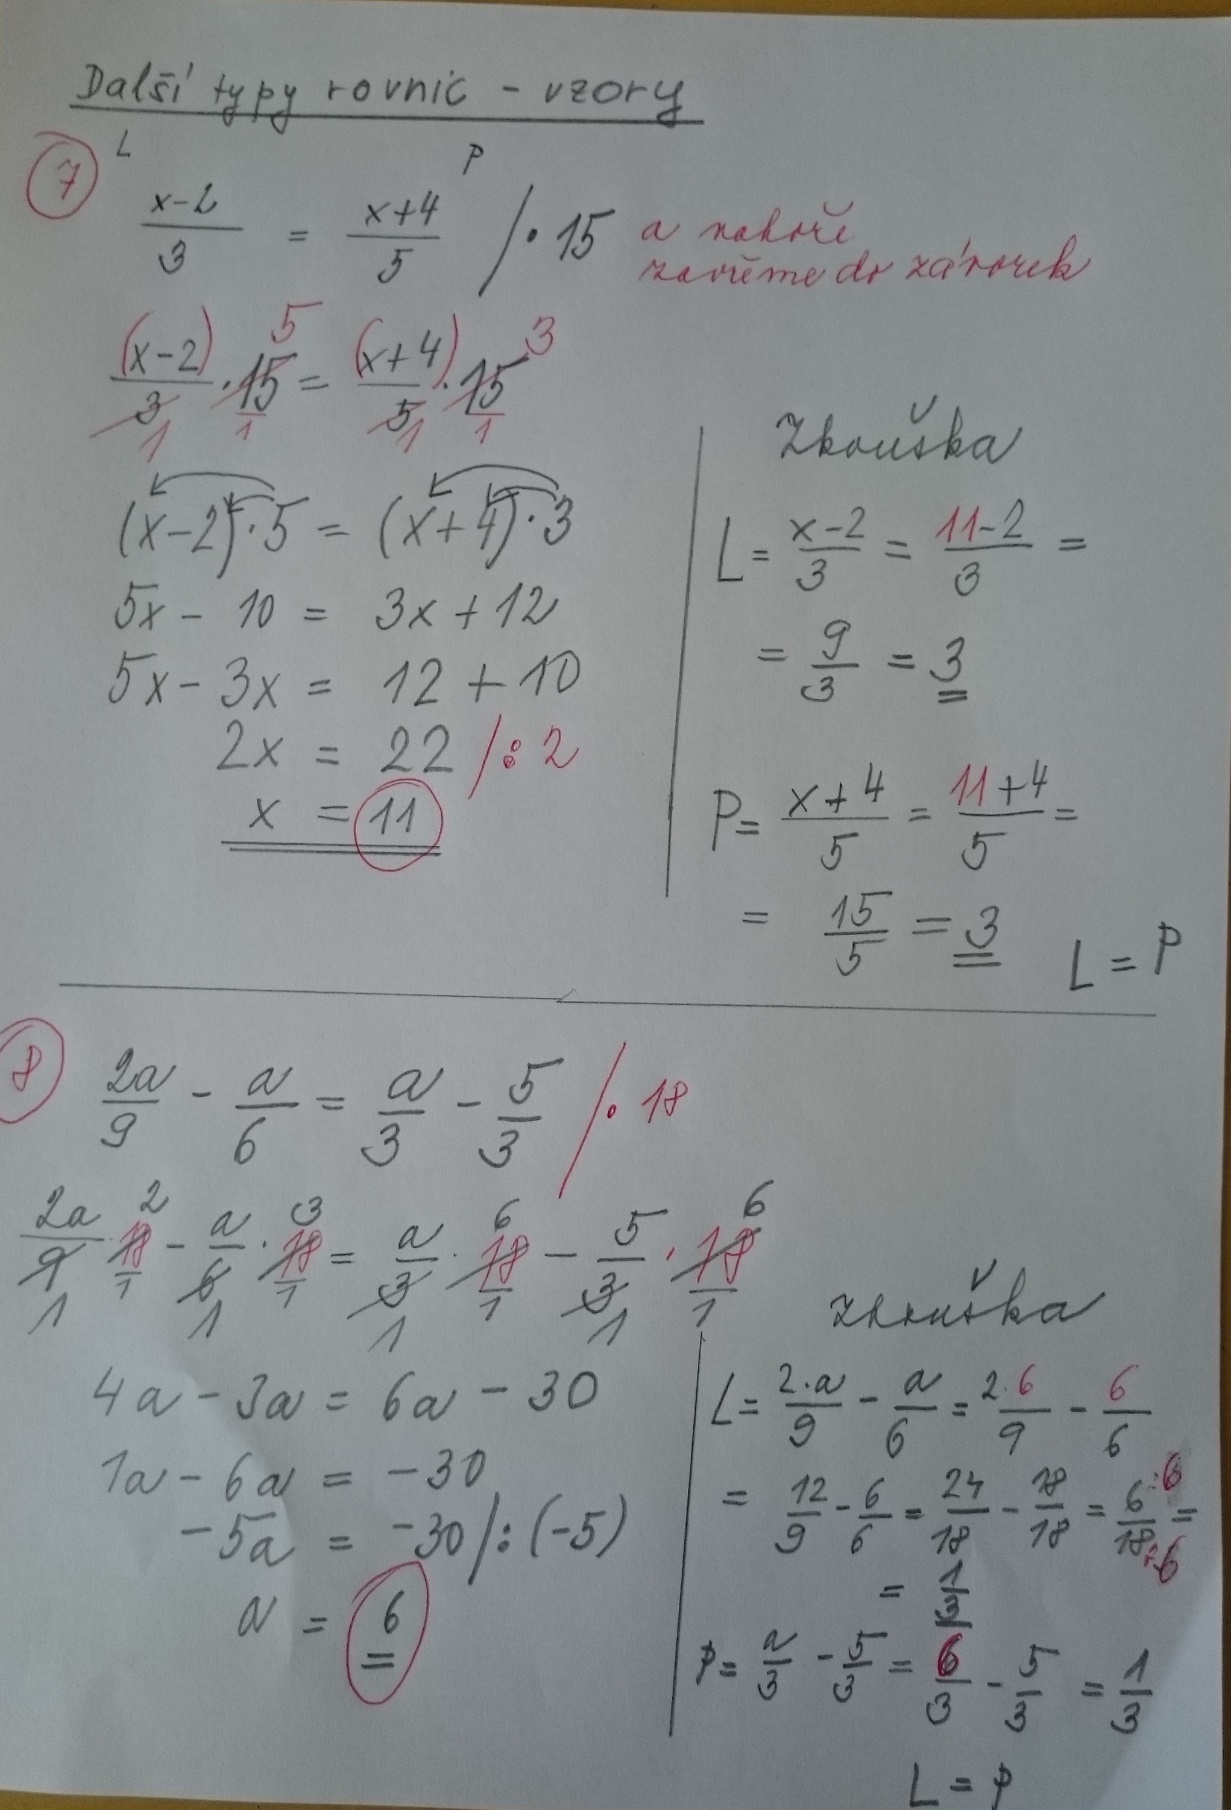 Další typy rovnic - vzory
7
L P
x-2/3 = x+4/5 /·15 a nahoře
zavřeme do závorek
(x-2)/3 1 · 15/1 5 = (x+4)/5 1 · 15/1 3
(x-2)·5 = (x+4)·3
5x - 10 = 3x + 12
5x - 3x = 12 + 10
2x = 22 /:2
x = 11
Zkouška
L = x-2/3 = 11-2/3 =
= 9/3 = 3
P = x+4/5 = 11+4/5 =
= 15/5 = 3
L = P
8
2a/9 - a/6 = a/3 - 5/3 /· 18
2a/9 1 · 18/1 2 - a/6 1 · 18/1 3 = a/3 1 · 18/1 6 - 5/3 1 · 18/1 6
4a - 3a = 6a - 30
1a - 6a = -30
-5a = -30 /:(-5)
a = 6
Zkouška
L = 2·a/9 - a/6 = 2·6/9 - 6/6
= 12/9 - 6/6 = 24/18 - 18/18 = 6:6/18:6 =
= 1/3
P = a/3 - 5/3 = 6/3 - 5/3 = 1/3
L = P